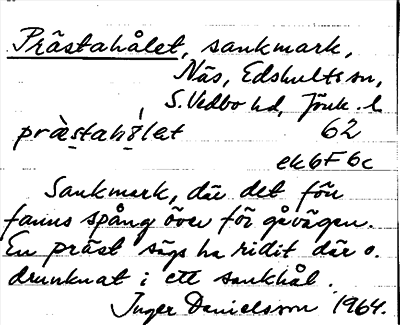 Prästahålet, sankmark,
Näs, Edshults sn,
S. Vedbo hd, Jönk. l
præ̀stahɵ́lət 62
ek 6F 6c
Sankmark, där det förr
fanns spång över för gåvägen.
En präst sägs ha ridit där o.
drunknat i ett sankhål.
Inger Danielsson 1964.